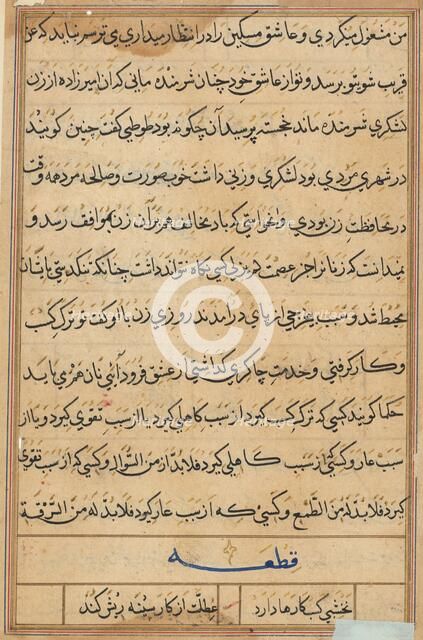 من مشغول میکردی و عاشق مسکین را در انتظار میداری می ترسم نباید که عن
قریب شوی تو برسد و تو از عاشق خود چنان شرمنده مانی که آن امیرزاده از زن
لشکری شرمنده ماند خجسته پرسید آن چگونه بود طوطی گفت چنین گویند
در شهری مردی بود لشکری و زنی داشت خوب صورت و صالحه مرد همه وقت
در محافظت زن بودی و نخواستی که باد مخالف بر آن زن موافق رسد و
نمیدانست که زنان را جز عصمت غریزی کسی نگاه نتواند داشت چنانکه تنگدستی بایشان
محیط شد و سبب بی خرجی از پای در آمدند روزی زن با او گفت تو ترک کسب
و کار گرفتی و خدمت چاکری گذاشتی از عشق فرود آی نان هم می باید
حکما گویند کسی که ترک کسب گیرد از سبب کاهلی گیرد یا از سبب تقوی گیرد و یا از
سبب عار و کسی که از سبب کاهلی گیرد فلا بد له من السؤال و کسی که از سبب تقوی
گیرد فلا بد له من الطمع و کسی که از سبب عار گیرد فلا بد له من السرقة
قطعه
نخشبی کسب کارها دارد
عطلت از کار سینه ریش کند